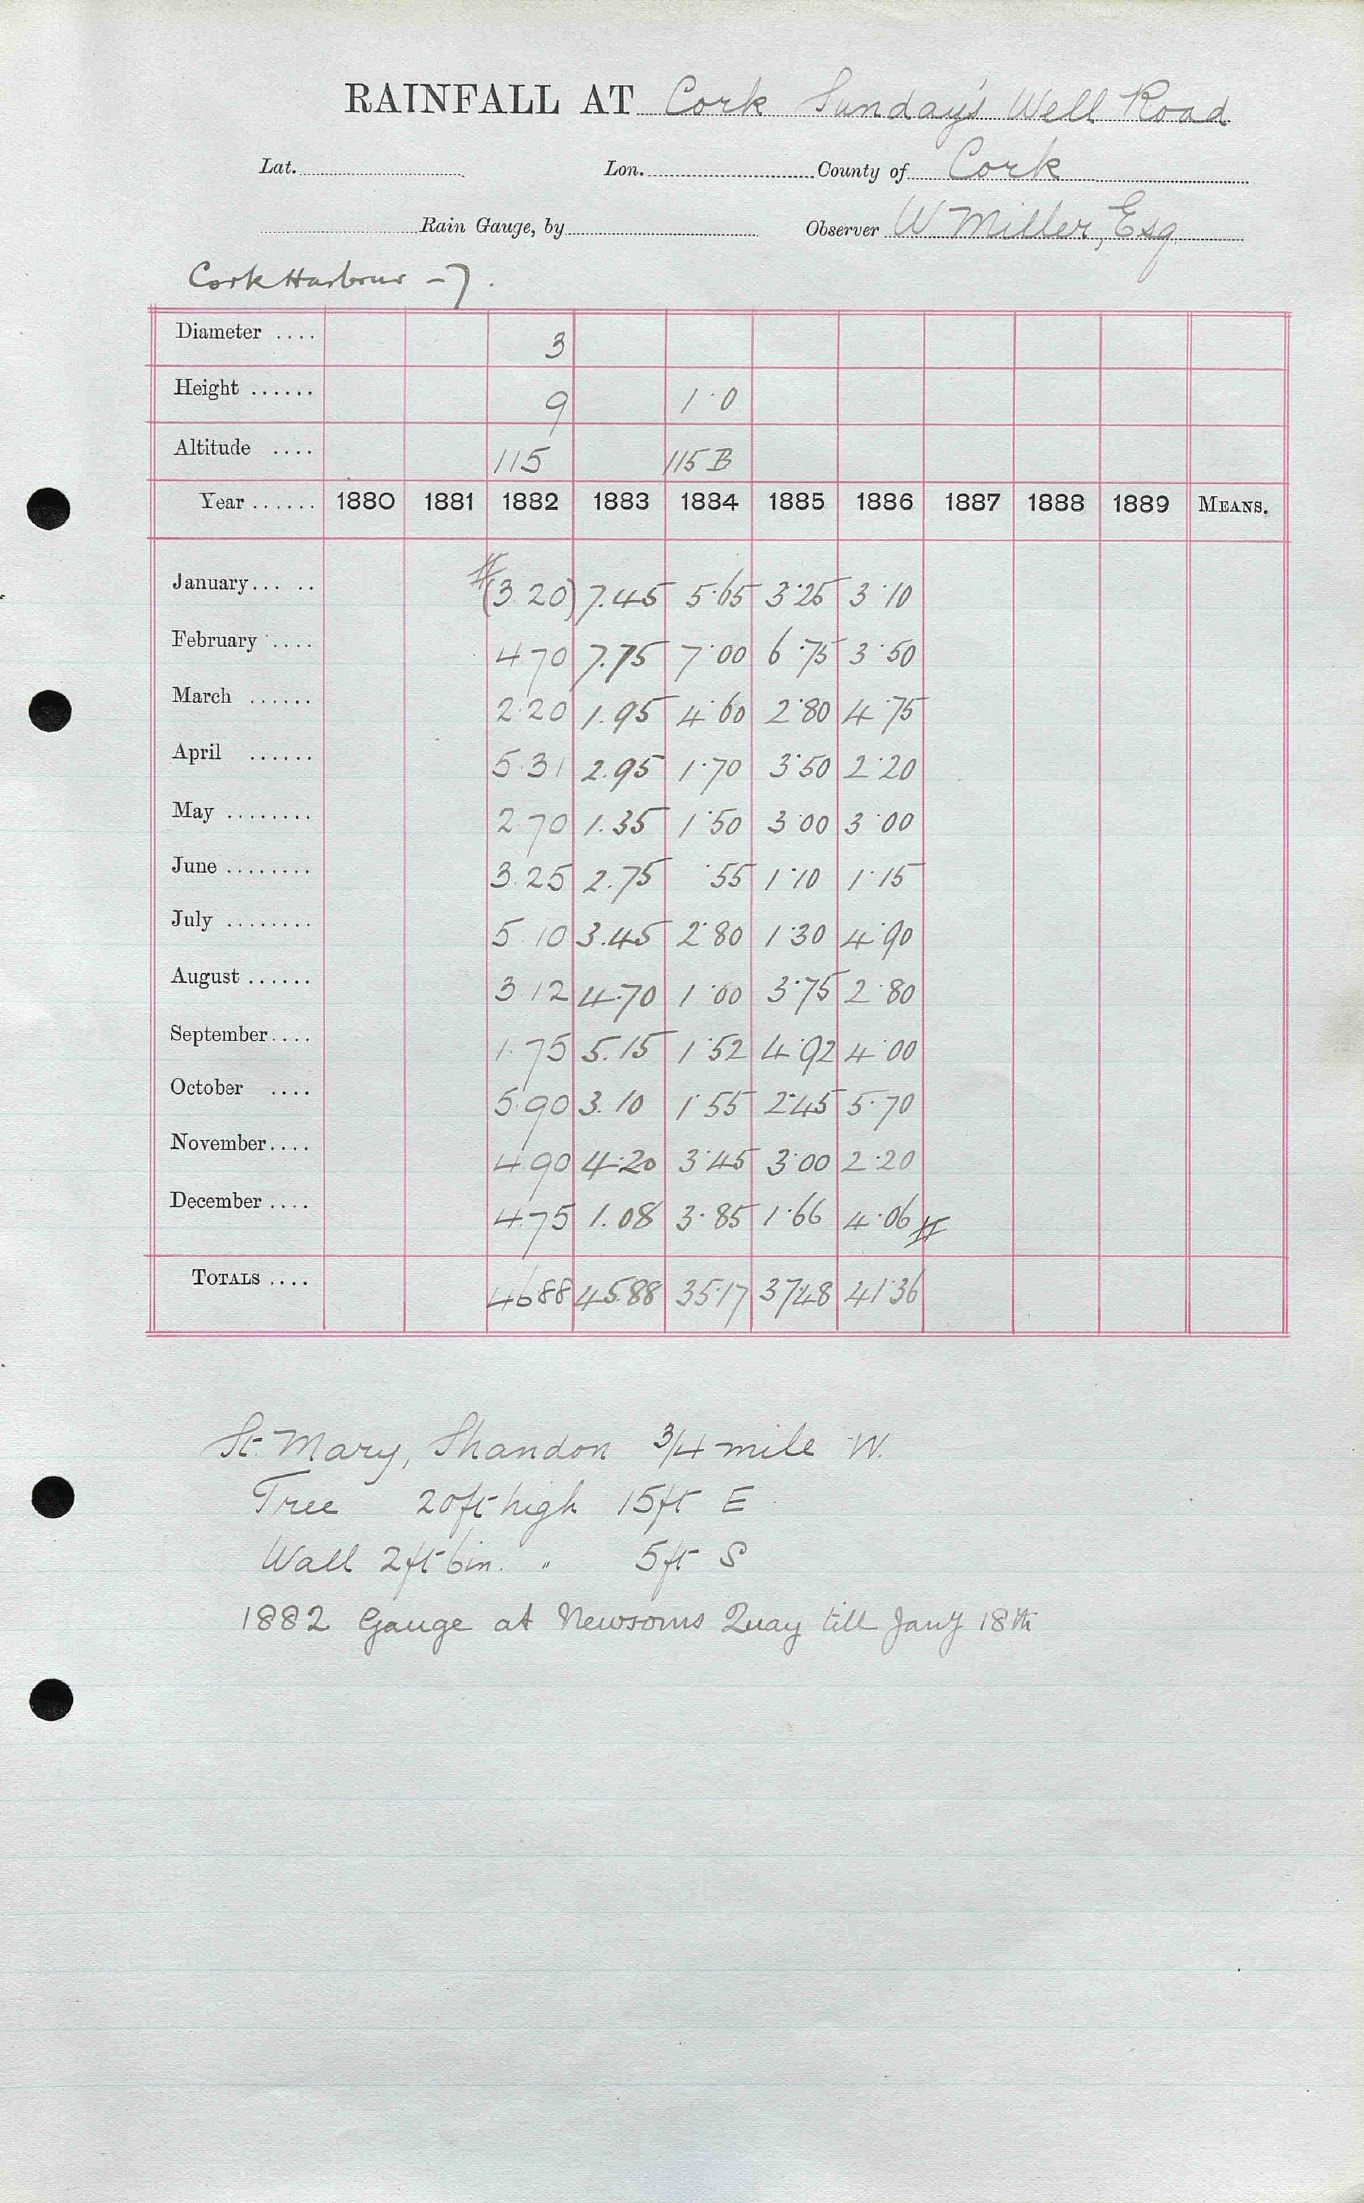 RAINFALL AT Cork Sunday's Well Road
Lat. Lon. County of Cork
Rain Gauge, by Observer W Miller, Esq
Cork Harbour - 7.
Diameter .... 3
Height ...... 9 1·0
Altitude .... 115 115 B
Year ...... 1880 1881 1882 1883 1884 1885 1886 1887 1888 1889 MEANS.
January... .. (3.20) 7.45 5·65 3·25 3·10
February .... 4.70 7.75 7·00 6·75 3·50
March ...... 2.20 1.95 4·60 2·80 4·75
April ...... 5.31 2.95 1·70 3·50 2·20
May ........ 2.70 1.35 1·50 3·00 3·00
June ........ 3.25 2.75 ·55 1·10 1·15
July ........ 5.10 3.45 2·80 1·30 4·90
August ...... 3.12 4.70 1·00 3·75 2·80
September.... 1.75 5.15 1·52 4·92 4·00
October .... 5.90 3.10 1·55 2·45 5·70
November.... 4.90 4.20 3·45 3·00 2·20
December .... 4.75 1.08 3·85 1·66 4·06
TOTALS .... 46.88 45.88 35·17 37·48 41·36
St. Mary, Shandon 3/4 mile W.
Tree 20ft high 15ft E
Wall 2ft 6in. " 5ft S
1882 Gauge at Newsoms Quay till Jany 18th